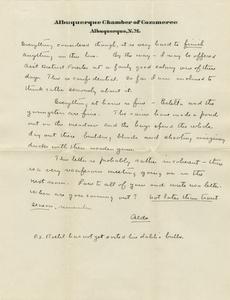 Albuquerque Chamber of Commerce
Albuquerque, N.M.
Everything considered though, it is very hard to finish
anything in this line. By the way - I may be offered
Asst District Forester at a fairly good salary one of these
days. This is confidential. So far I am inclined to
think rather seriously about it.
Everything at home is fine - Estella and the
youngsters are fine. The rains have made a pond
out on the meadow and the boys spend the whole
day out there building blinds and shooting imaginary
ducks with their wooden guns.
This letter is probably rather incoherent - there
is a very vociferous meeting going on in the
next room. Love to all of you and write me a letter.
When are you coming out? Not later than trout
season, remember
Aldo
P.S. Rodil has not yet sorted his dahlia bulbs.